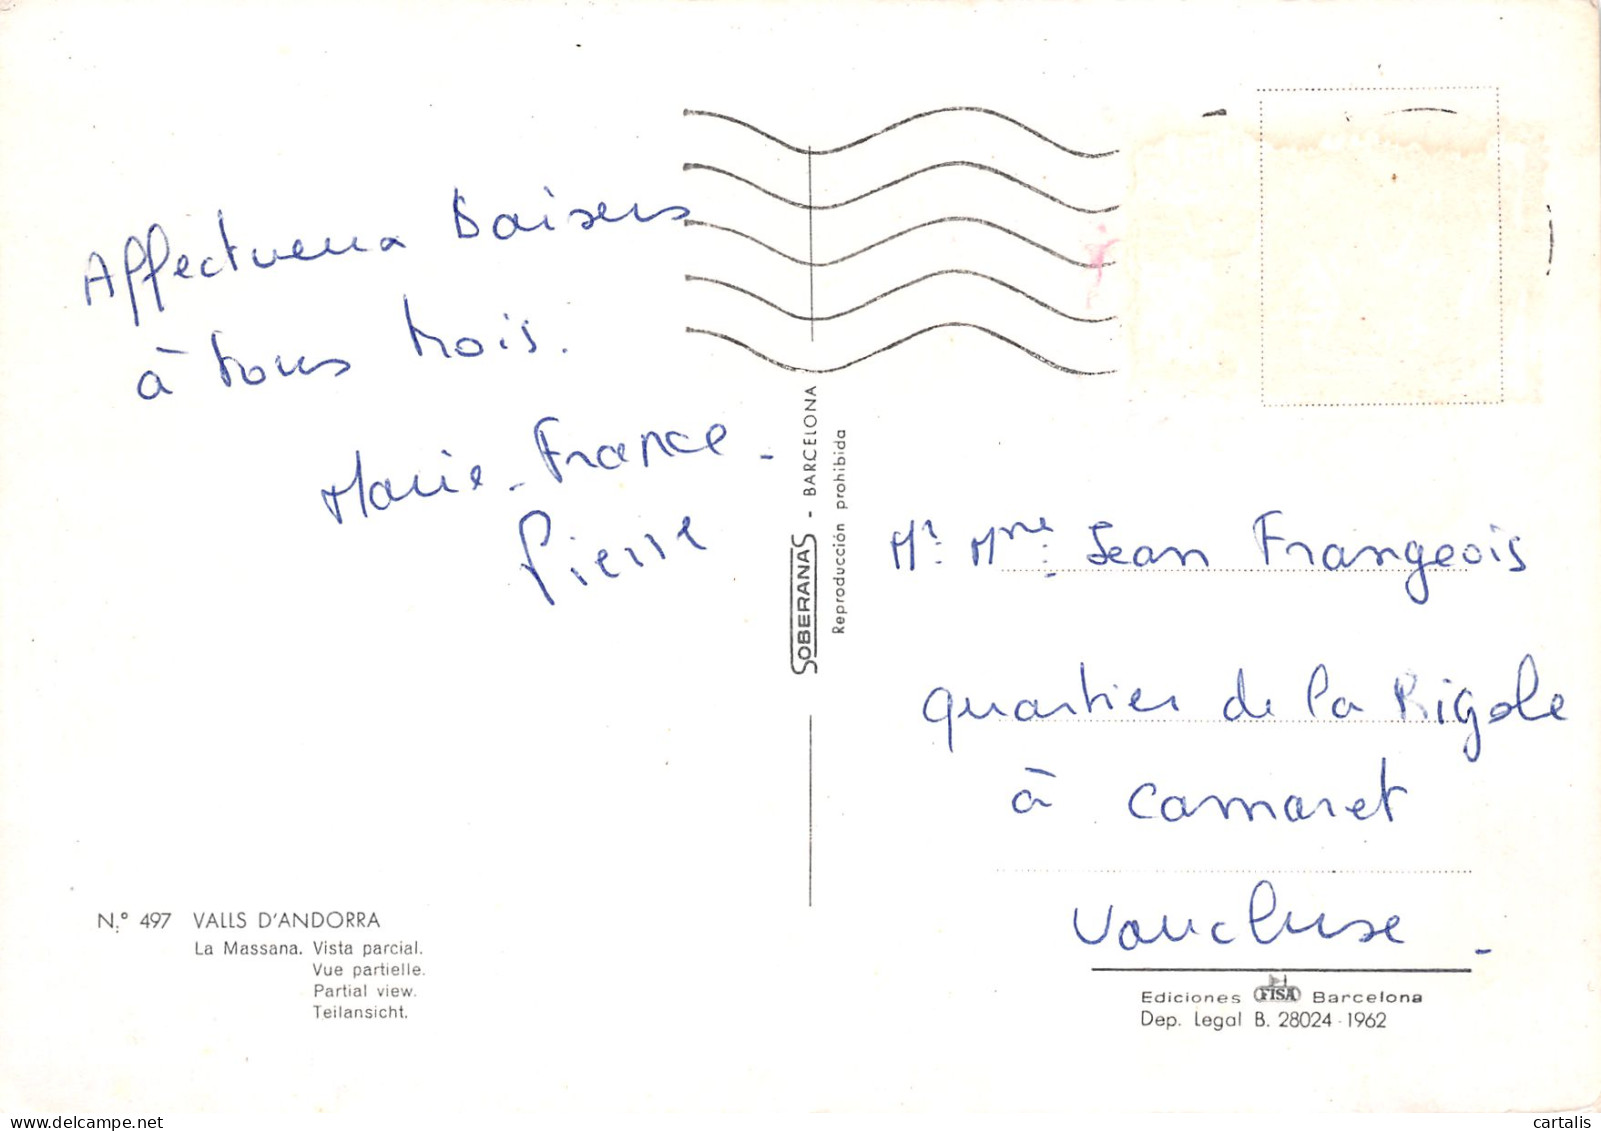 Affectueux Baisers
à tous trois.
Marie-France -
Pierre
N.º 497 VALLS D'ANDORRA
La Massana. Vista parcial.
Vue partielle.
Partial view.
Teilansicht.
SOBERANAS - BARCELONA
Reproducción prohibida
Mr. Mme. Jean Frangeois
quartier de la Rigole
à Camaret
Vaucluse -
Ediciones FISA Barcelona
Dep. Legal B. 28024 - 1962
cartalis